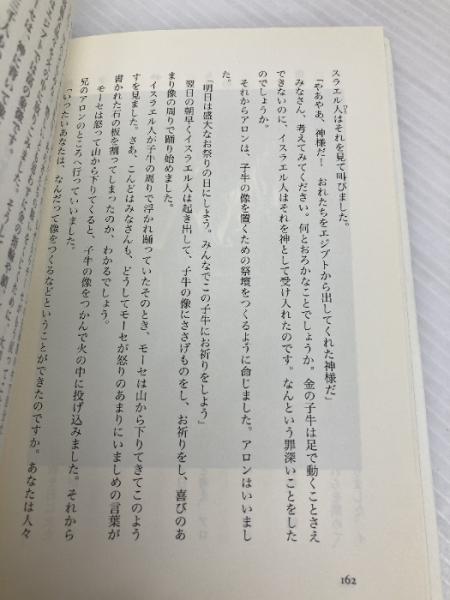 スラエル人はそれを見て叫びました。
「やあやあ、神様だ！　おれたちをエジプトから出してくれた神様だ」
みなさん、考えてみてください。何とおろかなことでしょうか。金の子牛は足で動くことさえ
できないのに、イスラエル人はそれを神として受け入れたのです。なんという罪深いことをした
のでしょうか。
それからアロンは、子牛の像を置くための祭壇をつくるように命じました。アロンはいいまし
た。
「明日は盛大なお祭りの日にしよう。みんなでこの子牛にお祈りをしよう」
翌日の朝早くイスラエル人は起き出して、子牛の像にささげものをし、お祈りをし、喜びのあ
まり像の周りで踊り始めました。
イスラエル人が子牛の周りで浮かれ踊っていたそのとき、モーセは山から下りてきてこのよう
すを見ました。さあ、こんどはみなさんも、どうしてモーセが怒りのあまりにいましめの言葉が
書かれた石の板を割ってしまったのか、わかるでしょう。
モーセは怒って山から下りてくると、子牛の像をつかんで火の中に投げ込みました。それから
兄のアロンのところへ行っていいました。
「いったいあなたは、なんだって像をつくるなどということができたのですか。あなたは人々
162